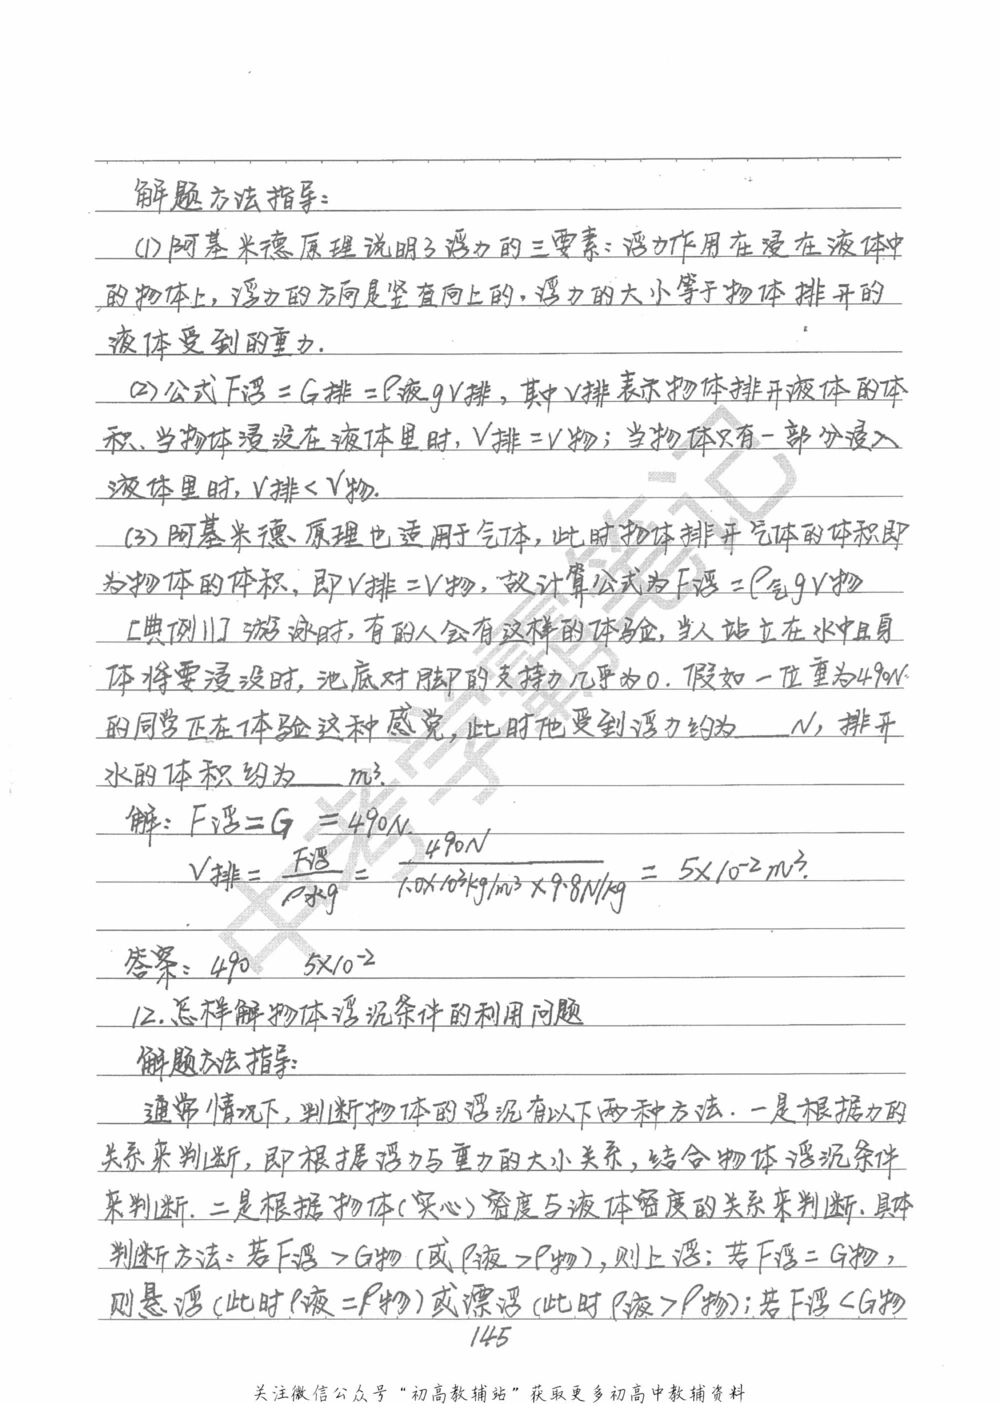 解题方法指导:
(1)阿基米德原理说明了浮力的三要素:浮力作用在浸在液体中
的物体上,浮力的方向是竖直向上的,浮力的大小等于物体排开的
液体受到的重力.
(2)公式F浮=G排=ρ液gV排,其中V排表示物体排开液体的体
积、当物体浸没在液体里时,V排=V物;当物体只有一部分浸入
液体里时,V排<V物.
(3)阿基米德原理也适用于气体,此时物体排开气体的体积即
为物体的体积,即V排=V物,故计算公式为F浮=ρ气gV物
[典例11]游泳时,有的人会有这样的体验,当人站立在水中且身
体将要浸没时,池底对脚的支持力几乎为0.假如一位重为490N
的同学正在体验这种感觉,此时他受到浮力约为____N,排开
水的体积约为____m³.
解:F浮=G=490N.
V排=F浮/ρ水g=490N/1.0×10³kg/m³×9.8N/kg=5×10-2m³.
答案:490 5×10-2
12.怎样解物体浮沉条件的利用问题
解题方法指导:
通常情况下,判断物体的浮沉有以下两种方法.一是根据力的
关系来判断,即根据浮力与重力的大小关系,结合物体浮沉条件
来判断.二是根据物体(实心)密度与液体密度的关系来判断.具体
判断方法:若F浮>G物(或ρ液>ρ物),则上浮;若F浮=G物,
则悬浮(此时ρ液=ρ物)或漂浮(此时ρ液>ρ物);若F浮<G物
145
关注微信公众号“初高教辅站”获取更多初高中教辅资料
中考学霸笔记